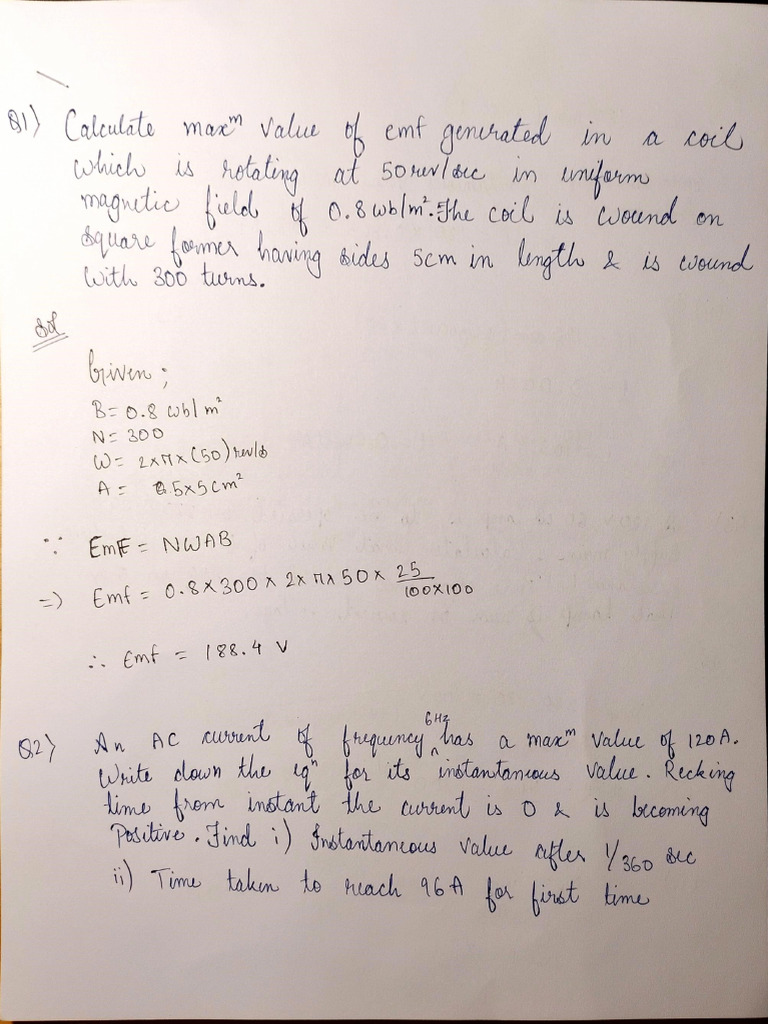 Q1) Calculate maxᵐ value of emf generated in a coil
which is rotating at 50 rev/sec in uniform
magnetic field of 0.8 wb/m². The coil is wound on
square former having sides 5cm in length & is wound
with 300 turns.
Sol
Given;
B = 0.8 wb/m²
N = 300
W = 2×π×(50) rev/s
A = 5×5 cm²
∵ EmF = NWAB
=) Emf = 0.8 × 300 × 2 × π × 50 × 25/100×100
∴ Emf = 188.4 V
Q2) An AC current of frequency 6Hz has a maxᵐ value of 120A.
Write down the eqⁿ for its instantaneous value. Recking
time from instant the current is 0 & is becoming
Positive. Find i) Instantaneous value after 1/360 sec
ii) Time taken to reach 96A for first time